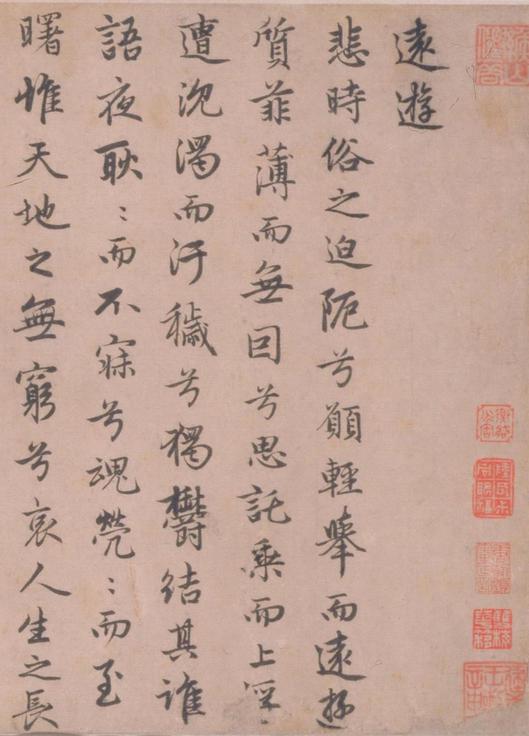 遠遊
悲時俗之迫阨兮願輕舉而遠遊
質菲薄而無因兮焉託乘而上浮
遭沉濁而汙穢兮獨鬱結其誰
語夜耿〻而不寐兮魂煢〻而至
曙惟天地之無窮兮哀人生之長